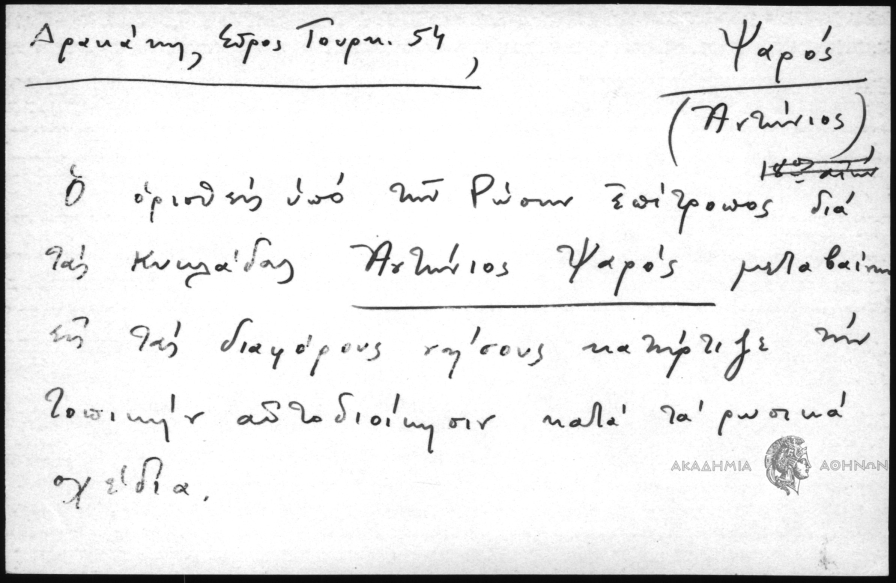 Δρακάκη, Σῦρος Τουρκ. 54,
Ψαρός
(Ἀντώνιος)
Ὁ ὁρισθείς ὑπό τῶν Ρώσων Ἐπίτροπος διά
τάς Κυκλάδας Ἀντώνιος Ψαρός μεταβαίνων
εἰς τάς διαφόρους νήσους κατήρτιζε τήν
τοπικήν αὐτοδιοίκησιν κατά τά ρωσικά
σχέδια.
ΑΚΑΔΗΜΙΑ ΑΘΗΝΩΝ